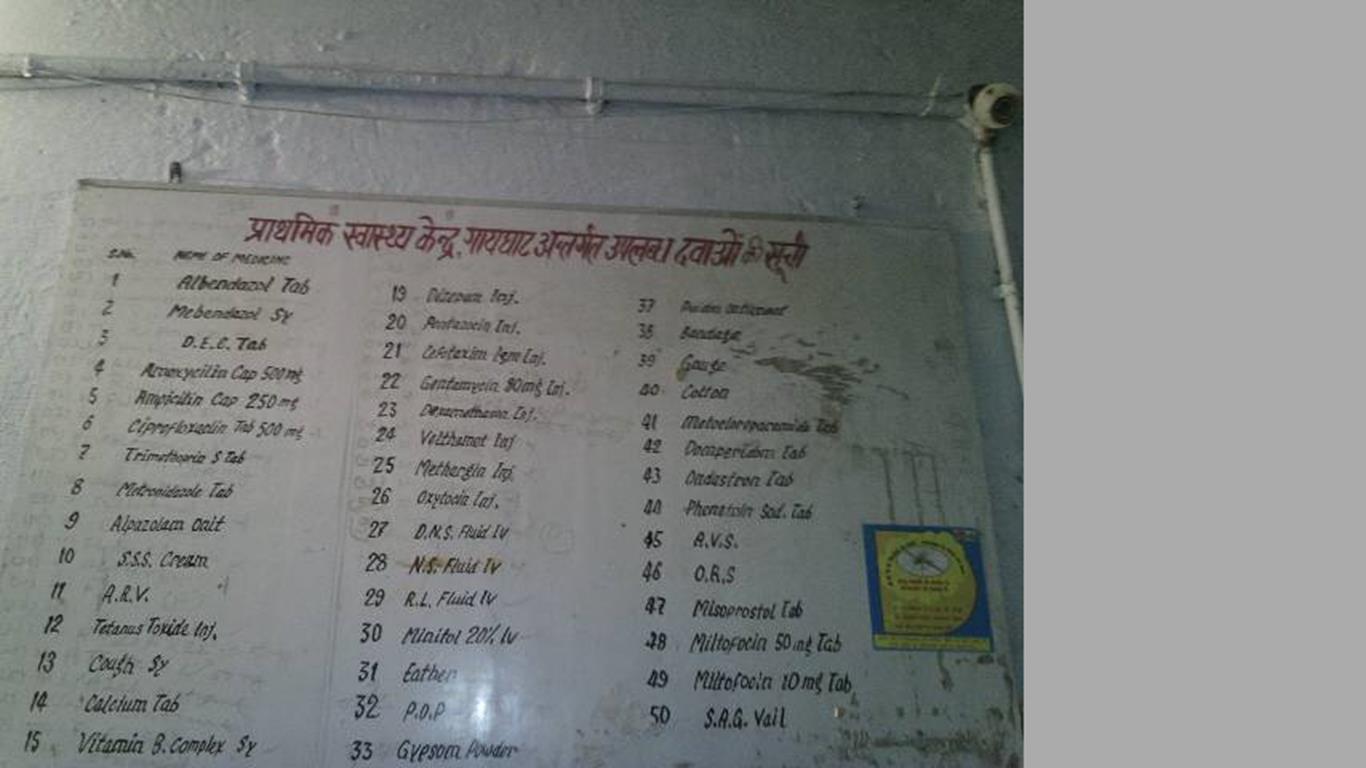 प्राथमिक स्वास्थ्य केन्द्र, गायघाट अन्तर्गत उपलब्ध दवाओं की सूची
S.No. NAME OF MEDICINE
1 Albendazol Tab
2 Mebendazol Sy
3 D.E.C. Tab
4 Amoxycilin Cap 500 mg
5 Ampicilin Cap 250 mg
6 Ciprofloxaclin Tab 500 mg
7 Trimethoprin S Tab
8 Metronidazole Tab
9 Alpazolam Oait
10 S.S.S. Cream
11 A.R.V.
12 Tetanus Toxide Inj.
13 Cough Sy
14 Calcium Tab
15 Vitamin B. Complex Sy
19 Dizepam Inj.
20 Pentazocin Inj.
21 Cefotaxim 1gm Inj.
22 Gentamycin 80mg Inj.
23 Dexamethason Inj.
24 Velthamet Inj
25 Methergin Inj.
26 Oxytocin Inj.
27 D.N.S. Fluid IV
28 N.S. Fluid IV
29 R.L. Fluid IV
30 Minitol 20% Iv
31 Eather
32 P.O.P
33 Gypsom Powder
37
38 Bandage
39 Gauge
40 Cotton
41 Metocloroparamide Tab
42 Domperidom Tab
43 Ondastron Tab
44 Phenetoin Sod. Tab
45 A.V.S.
46 O.R.S
47 Misoprostol Tab
48 Miltofocin 50 mg Tab
49 Miltofocin 10 mg Tab
50 S.A.G. Vail